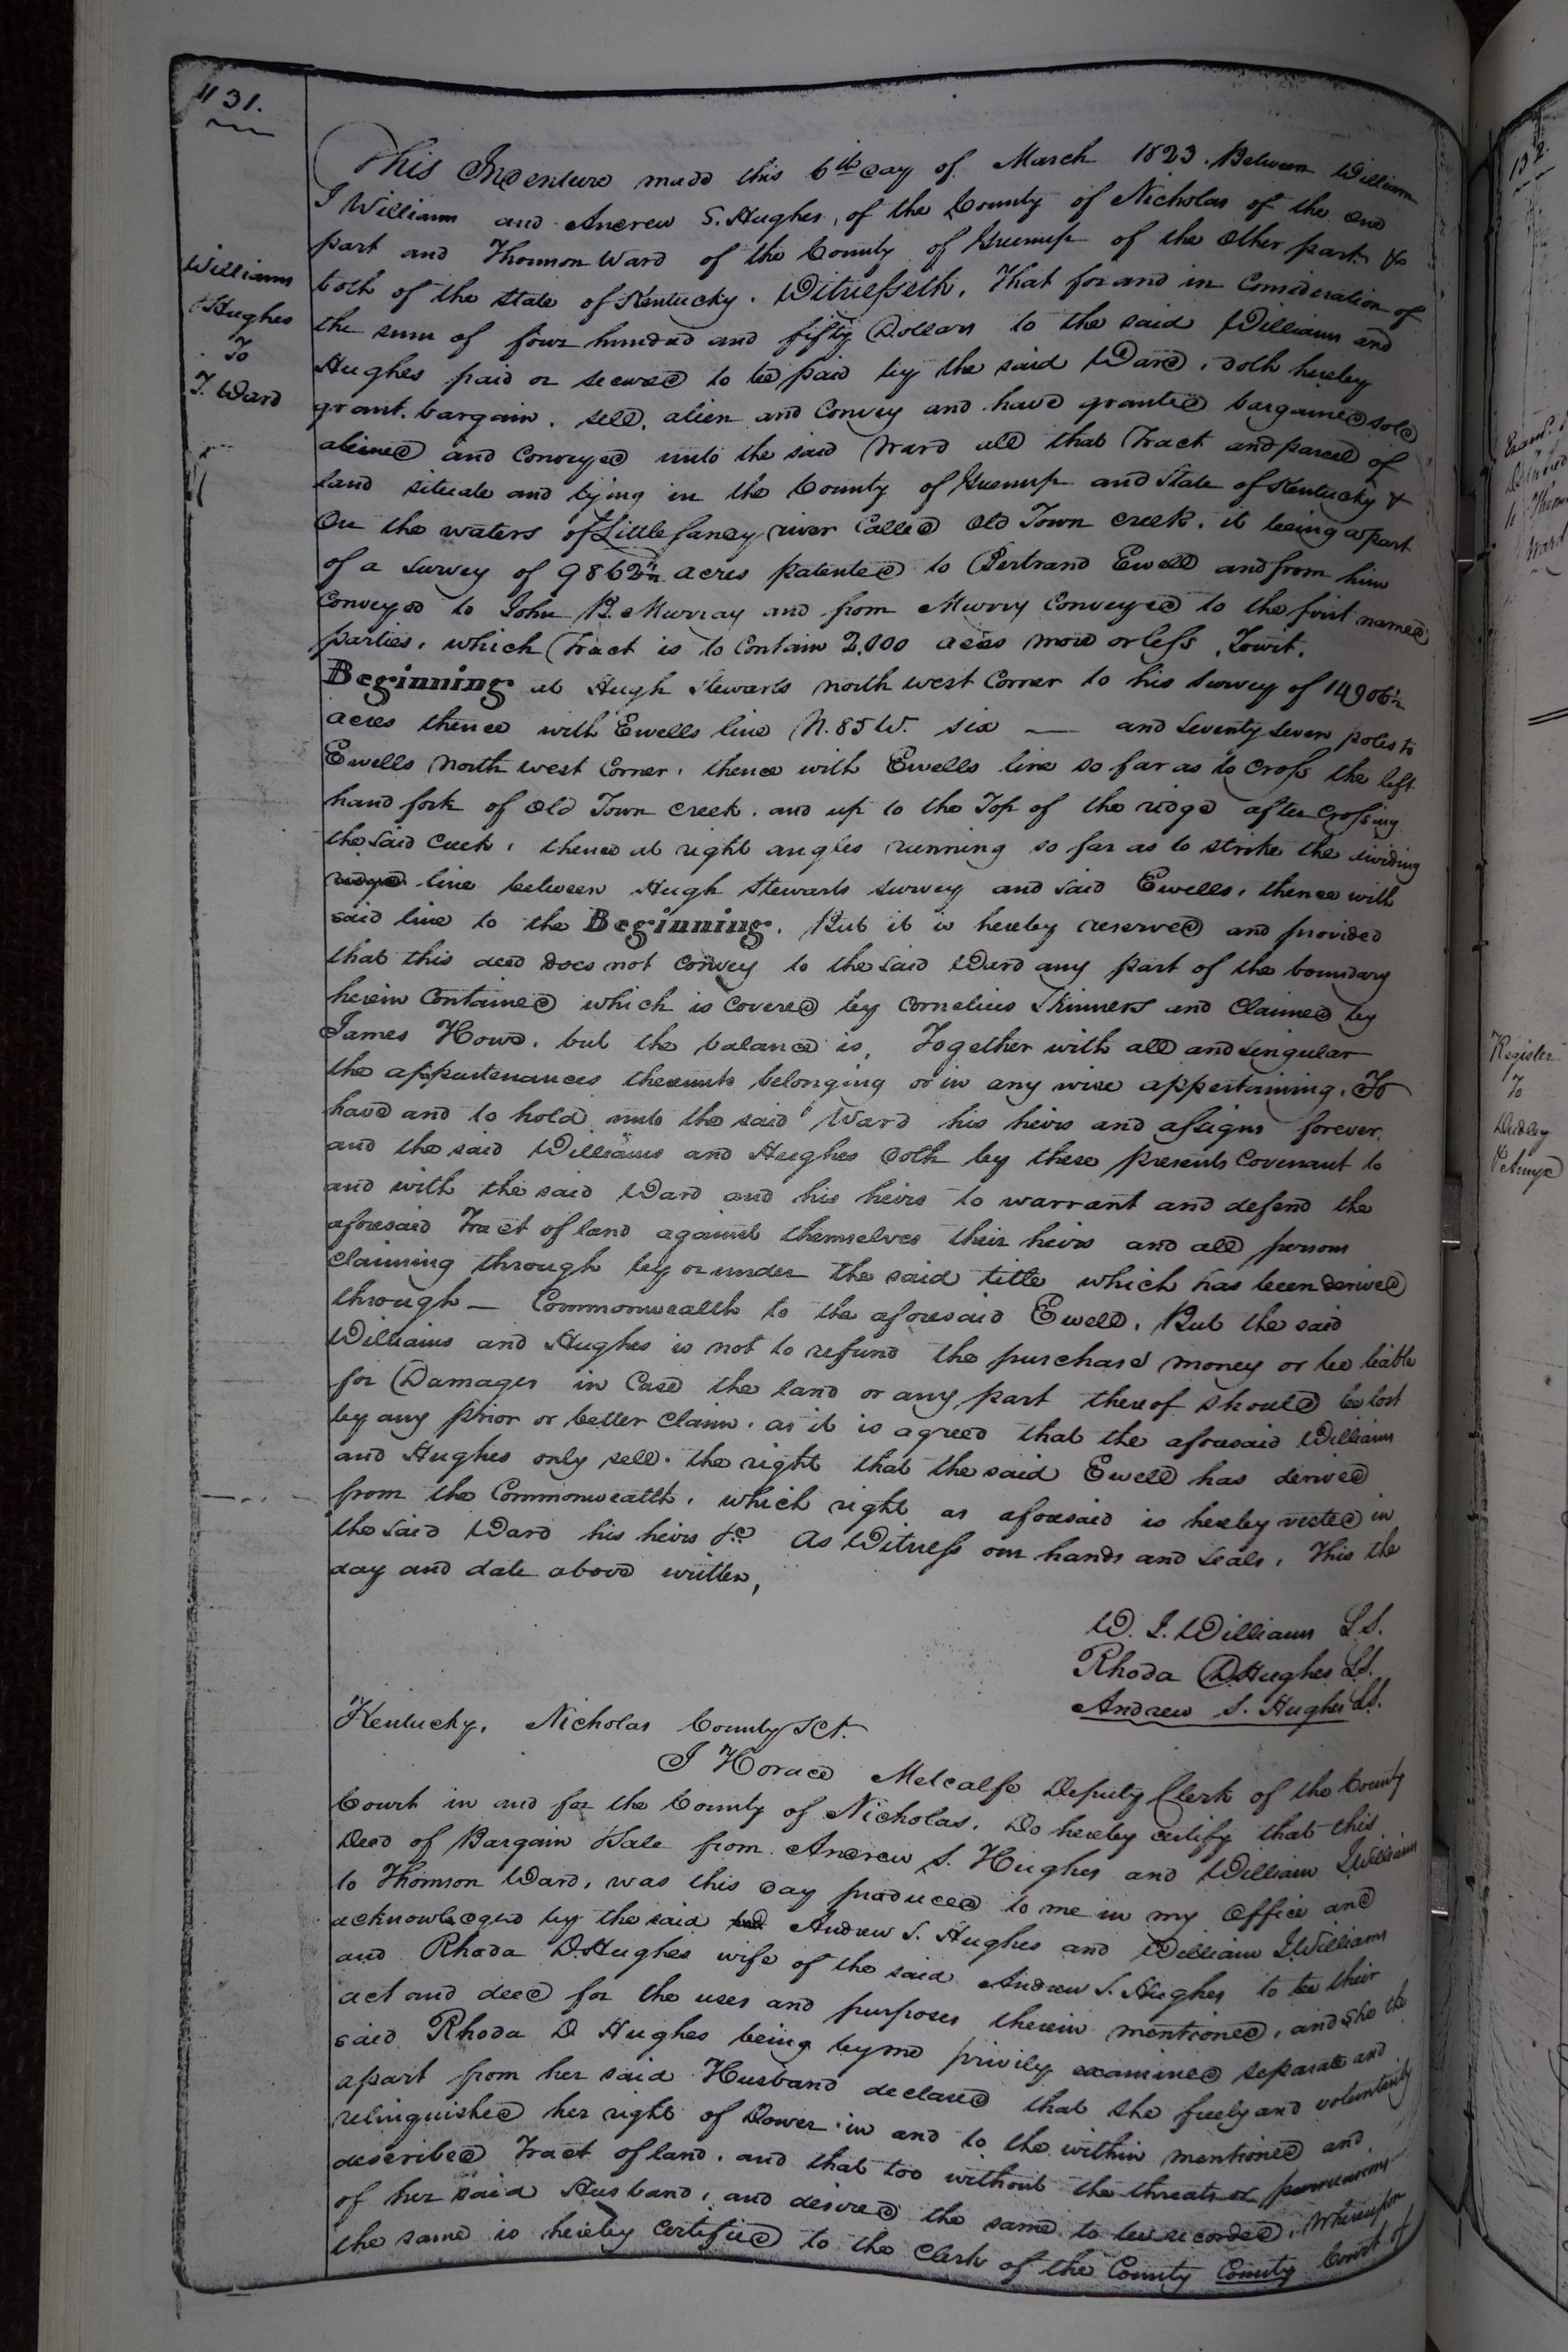 131.
Williams
& Hughes
To
T. Ward
This Indenture made this 6th day of March 1823. Between William
I Williams and Andrew S. Hughes, of the County of Nicholas of the one
part and Thomson Ward of the County of Greenup of the other part &
both of the state of Kentucky. Witnesseth. That for and in Consideration of
the sum of four hundred and fifty Dollars to the said Williams and
Hughes paid or secured to be paid by the said Ward, doth hereby
grant. bargain. sell, alien and Convey and have granted bargained sold
aliened and Conveyed unto the said Ward all that Tract and parcel of
land situate and lying in the County of Greenup and State of Kentucky &
On the waters of Little sandy river Called Old Town creek. it being a part
of a survey of 9862½ acres patented to Bertrand Ewell and from him
Conveyed to John B. Murray and from Murry Conveyed to the first named
parties, which Tract is to Contain 2,000 acres more or less, Towit,
Beginning at Hugh Stewarts north west Corner to his survey of 14906½
acres thence with Ewells line N. 85 W. six — and seventy seven poles to
Ewells North west Corner, thence with Ewells line so far as to cross the left
hand fork of Old Town creek. and up to the Top of the ridge after crossing
the said creek, thence at right angles running so far as to strike the dividing
ridge line between Hugh Stewarts survey and said Ewells, thence with
said line to the Beginning. But it is hereby reserved and provided
that this deed does not convey to the said Ward any part of the boundary
herein Contained which is Covered by Cornelius Skinners and Claimed by
James Howe. but the balance is, Together with all and singular
the appurtenances thereunto belonging or in any wise appertaining. To
have and to hold unto the said Ward his heirs and assigns forever.
and the said Williams and Hughes doth by these presents Covenant to
and with the said Ward and his heirs to warrant and defend the
aforesaid Tract of land against themselves their heirs and all persons
Claiming through by or under the said title which has been derived
through — Commonwealth to the aforesaid Ewell. But the said
Williams and Hughes is not to refund the purchase money or be liable
for Damages in Case the land or any part thereof should be lost
by any prior or better Claim. as it is agreed that the aforesaid Williams
and Hughes only sell. the right that the said Ewell has derived
from the Commonwealth, which right as aforesaid is hereby vested in
the said Ward his heirs &c. As Witness our hands and seals, This the
day and date above written,
W. I. Williams L.S.
Rhoda D Hughes L.S.
Andrew S. Hughes L.S.
Kentucky, Nicholas County Sct.
I Horace Metcalfe Deputy Clerk of the County
Court in and for the County of Nicholas. Do hereby certify that this
Deed of Bargain & Sale from Andrew S. Hughes and William I Williams
to Thomson Ward, was this day produced to me in my Office and
acknowledged by the said Andrew S. Hughes and William I Williams
and Rhoda D Hughes wife of the said Andrew S. Hughes to be their
act and deed for the uses and purposes therein mentioned, and she the
said Rhoda D Hughes being by me privily examined separate and
apart from her said Husband declared that she freely and voluntarily
relinquished her right of Dower in and to the within mentioned and
described Tract of land. and that too without the threats or persuasions
of her said Husband, and desired the same to be recorded, Whereupon
the same is hereby Certified to the Clerk of the County County Court of
132.
to
Ward
Register
To
Dudley